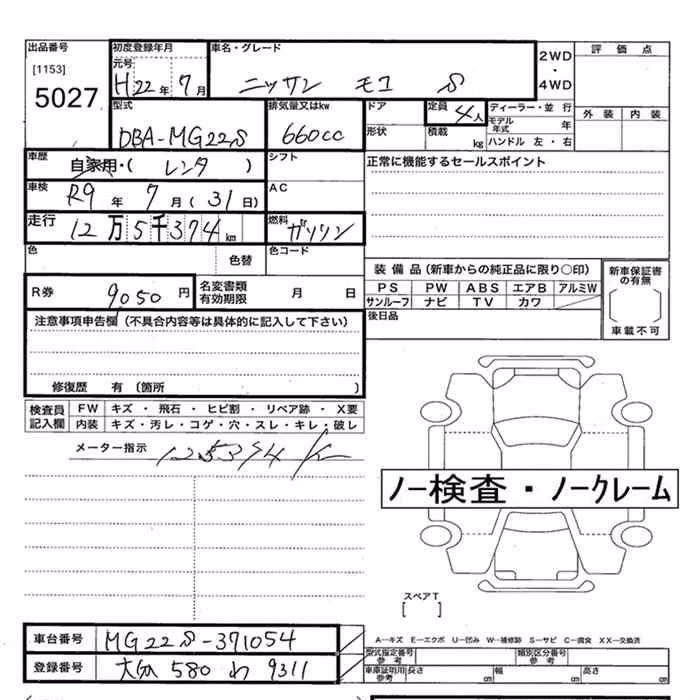 出品番号
[1153]
5027
初度登録年月
元号
H22年 7月
車名・グレード
ニッサン モコ S
2WD
・
4WD
評価点
外装 内装
型式
DBA-MG22S
排気量又はkw
660cc
ドア
形状
定員
4人
積載
kg
ディーラー・並 行
モデル
年式
年
ハンドル 左・右
車歴
自家用・( レンタ )
シフト
正常に機能するセールスポイント
車検
R9 年 7 月 ( 31 日)
AC
走行
12万5千374km
燃料
ガソリン
色
色替
色コード
装備品(新車からの純正品に限り○印)
PS PW ABS エアB アルミW
サンルーフ ナビ TV カワ
新車保証書
の有無
車載不可
R券
9,050 円
名変書類
有効期限
月 日
後日品
注意事項申告欄(不具合内容等は具体的に記入して下さい)
修復歴 有(箇所 )
検査員
記入欄
FW キズ・飛石・ヒビ割・リペア跡・X要
内装 キズ・汚レ・コゲ・穴・スレ・キレ・破レ
メーター指示
125374 K
ノー検査・ノークレーム
スペアT
[ ]
車台番号
MG22S-371054
登録番号
大分 580 わ 9311
A―キズ E―エクボ U―凹み W―補修跡 S―サビ C―腐食 XX―交換済
型式指定番号
参考
類別区分番号
参考
車庫証明用
参考
長さ cm 幅 cm 高さ cm